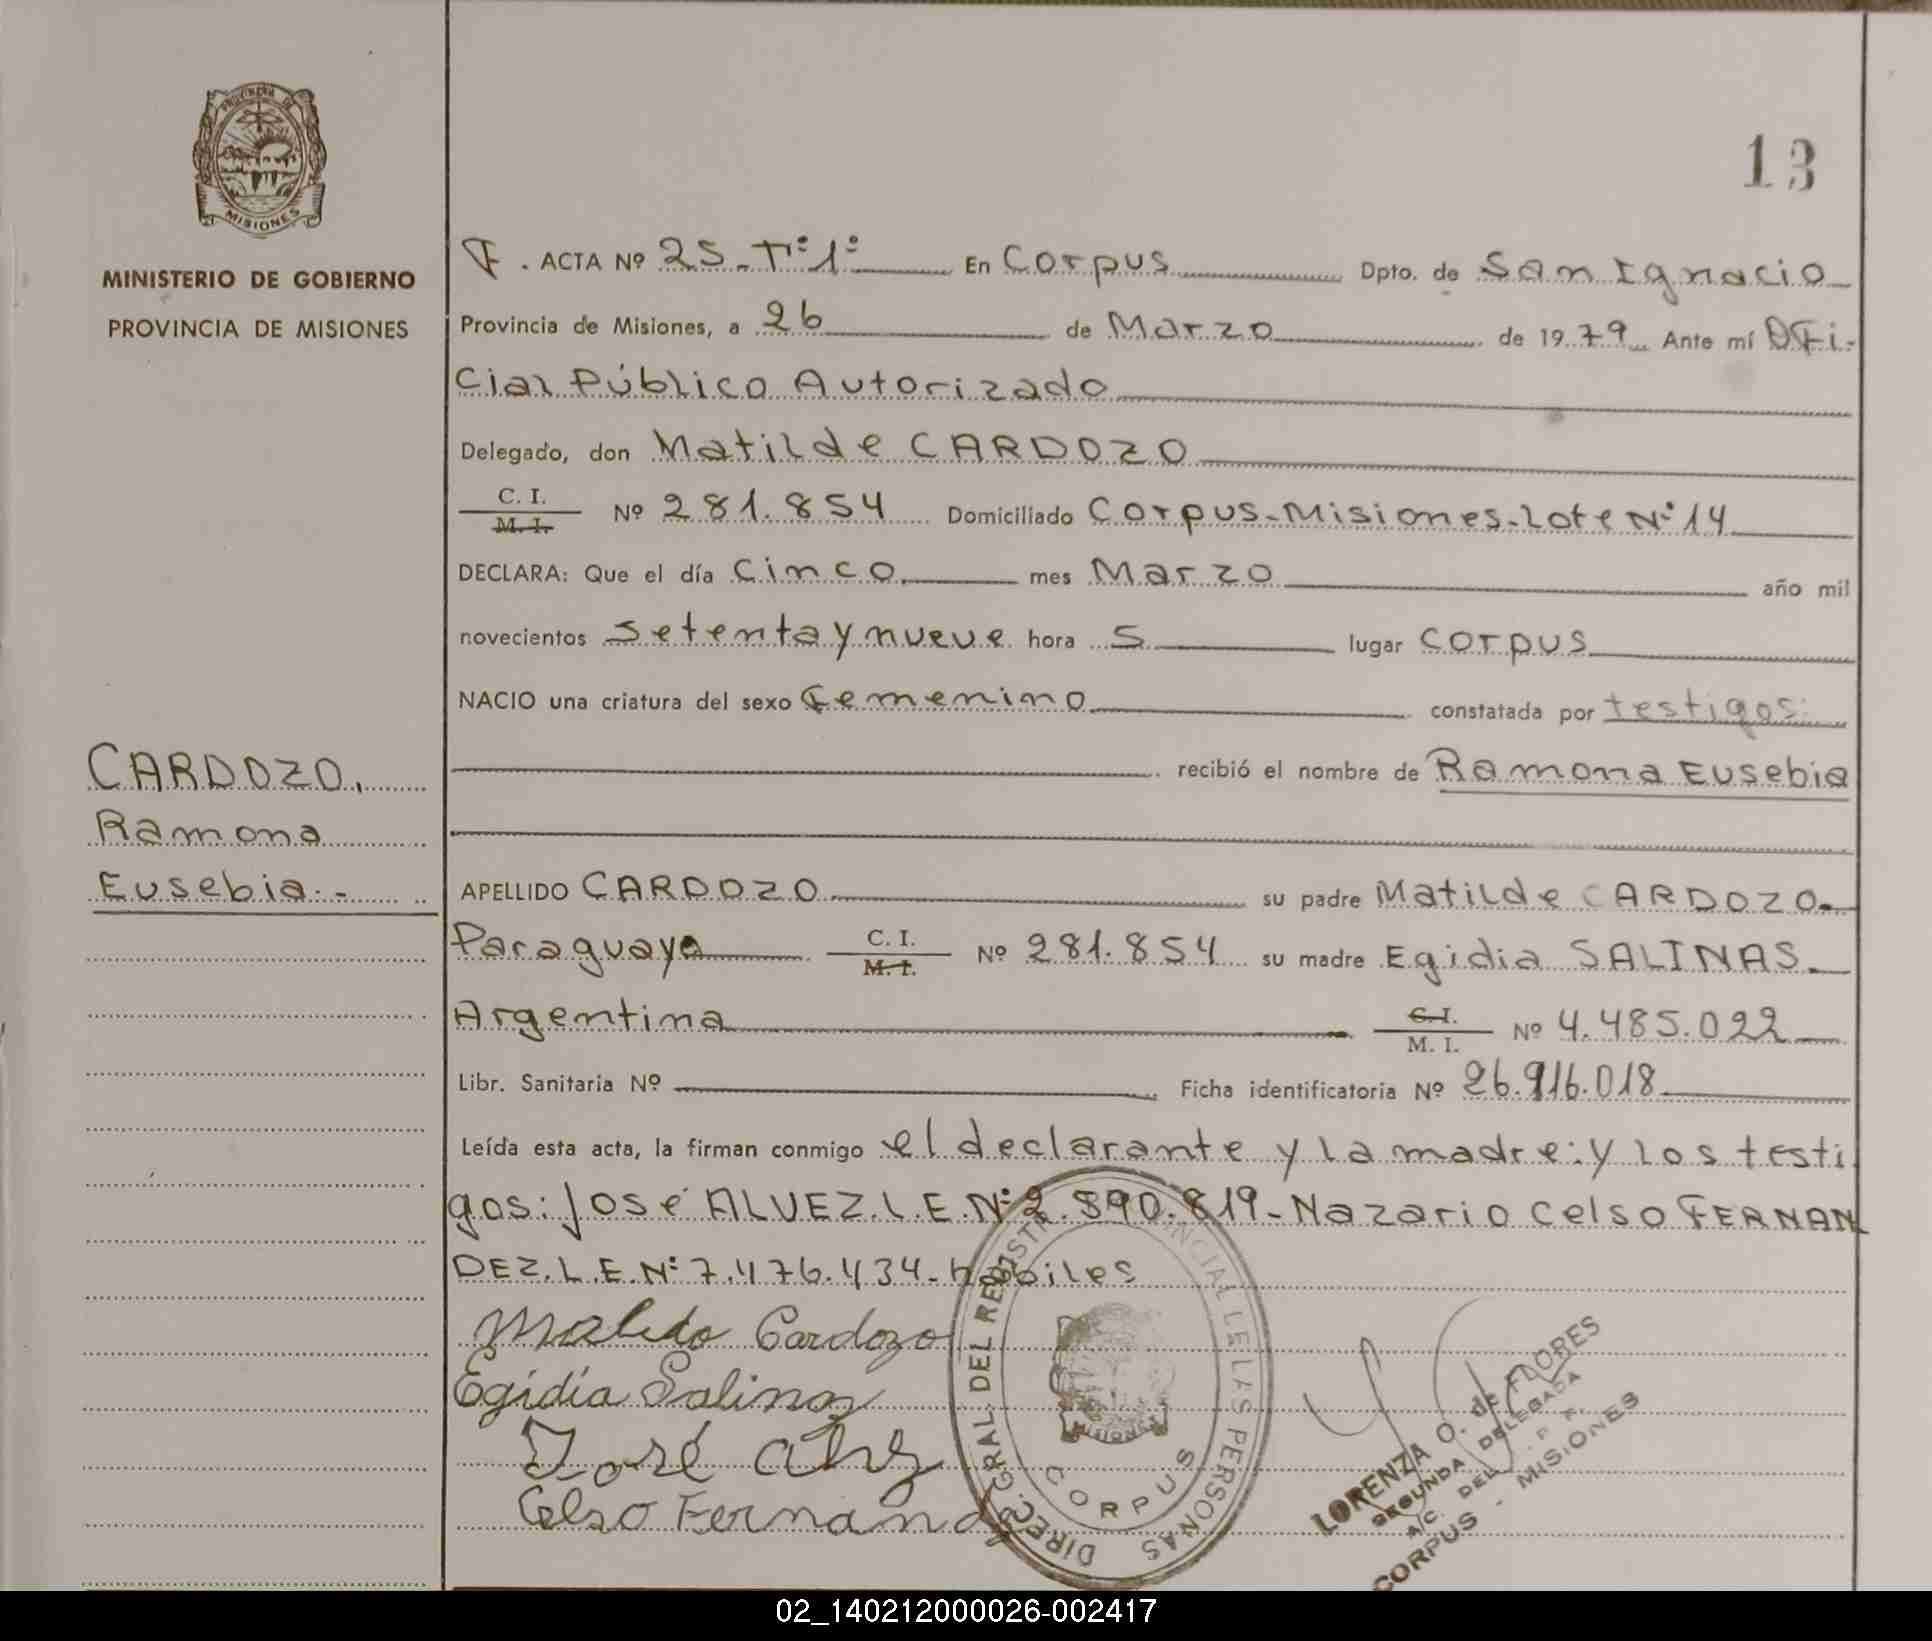 PROVINCIA DE
MISIONES
MINISTERIO DE GOBIERNO
PROVINCIA DE MISIONES
13
F. ACTA Nº 25 - Tº 1º En Corpus Dpto. de San Ignacio
Provincia de Misiones, a 26 de Marzo de 1979 Ante mí Ofi-
cial Público Autorizado
Delegado, don Matilde CARDOZO
C. I.
M. I. Nº 281.854 Domiciliado Corpus-Misiones-Lote Nº 14
DECLARA: Que el día Cinco mes Marzo año mil
novecientos setenta y nueve hora 5 lugar Corpus
NACIO una criatura del sexo Femenino constatada por testigos
recibió el nombre de Ramona Eusebia
CARDOZO,
Ramona
Eusebia.-
APELLIDO CARDOZO su padre Matilde CARDOZO-
Paraguayo C. I.
M. I. Nº 281.854 su madre Egidia SALINAS-
Argentina C. I.
M. I. Nº 4.485.022
Libr. Sanitaria Nº Ficha identificatoria Nº 26.916.018
Leída esta acta, la firman conmigo el declarante y la madre: y los testi
gos: José ALVEZ. L.E. Nº 2.590.819- Nazario Celso FERNAN
DEZ. L.E. Nº 7.476.434- hábiles
Cardozo
Egidia Salinas
José
Celso Fernandez
DIREC. GRAL. DEL REGISTRO PROVINCIAL DE LAS PERSONAS
MISIONES
CORPUS
LORENZA O. de FLORES
SEGUNDA DELEGADA
A/C. DEL R. P. P.
CORPUS - MISIONES
02_140212000026-002417